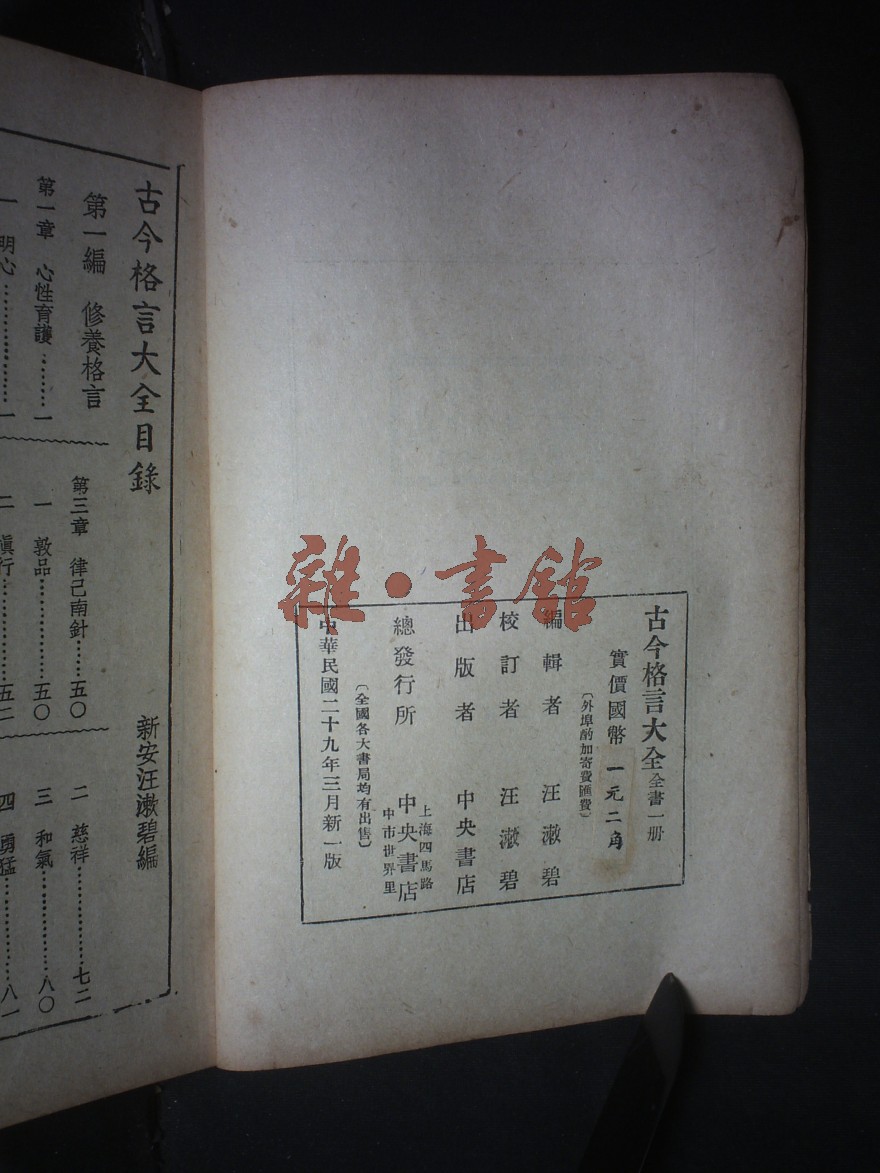 古今格言大全 全書一册
實價國幣 一元二角
〔外埠酌加寄費匯費〕
編輯者 汪漱碧
校訂者 汪漱碧
出版者 中央書店
總發行所 上海四馬路
中市世界里
中央書店
〔全國各大書局均有出售〕
中華民國二十九年三月新一版
雜·書館
古今格言大全目錄 新安汪漱碧編
第一編 修養格言
第一章 心性育護………一
一 明心………………一
第三章 律己南針……五〇
一 敦品……………五〇
二 愼行……………五二
二 慈祥……………七二
三 和氣……………八〇
四 勇猛……………八一